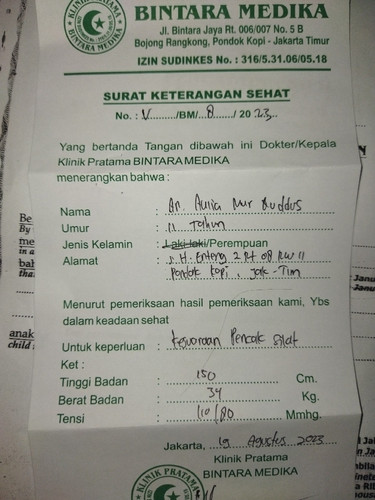 KLINIK PRATAMA
BINTARA MEDIKA
BINTARA MEDIKA
Jl. Bintara Jaya Rt. 006/007 No. 5 B
Bojong Rangkong, Pondok Kopi - Jakarta Timur
IZIN SUDINKES No. : 316/5.31.06/05.18
SURAT KETERANGAN SEHAT
No. : V /BM/ 8 / 20 23
Yang bertanda Tangan dibawah ini Dokter/Kepala
Klinik Pratama BINTARA MEDIKA
menerangkan bahwa :
Nama : An. Aulia Nur Kuddus
Umur : 11 Tahun
Jenis Kelamin : Laki-laki/Perempuan
Alamat : Jl. H. Enteng 2 Rt 08 RW 11
Pondok Kopi, Jak-Tim
Menurut pemeriksaan hasil pemeriksaan kami, Ybs
dalam keadaan sehat
Untuk keperluan : Kejuaraan Pencak Silat
Ket :
Tinggi Badan : 150 Cm.
Berat Badan : 34 Kg.
Tensi : 110/80 Mmhg.
Jakarta, 19 Agustus 2023
Klinik Pratama
BINTARA MEDIKA
KLINIK PRATAMA